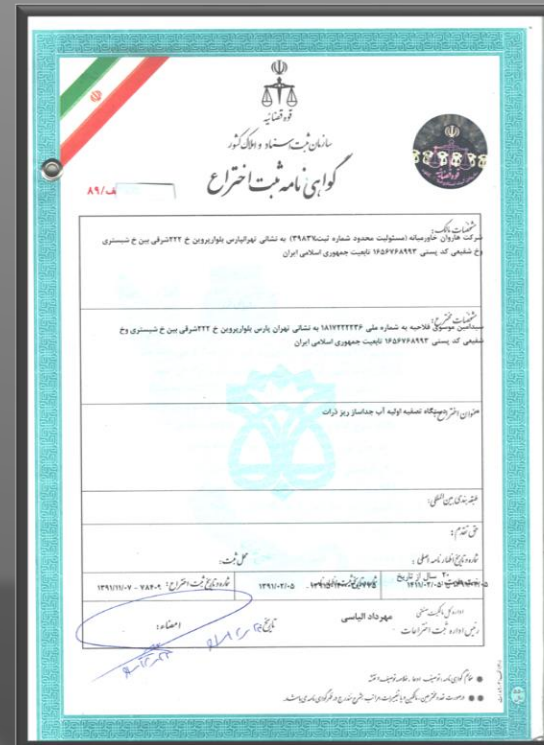 قوه قضائیه
سازمان ثبت اسناد و املاک کشور
گواهی نامه ثبت اختراع
ف/۸۹
مشخصات مالک:
شرکت هاروان خاورمیانه (مسئولیت محدود شماره ثبت۳۹۸۳۷) به نشانی تهرانپارس بلوارپروین خ ۲۲۲شرقی بین خ شبستری
وخ شفیعی کد پستی ۱۶۵۶۷۶۸۹۹۳ تابعیت جمهوری اسلامی ایران
مشخصات مخترع:
سیدامین موسوی فلاحیه به شماره ملی ۱۸۱۷۲۲۲۲۳۶ به نشانی تهران پارس بلوارپروین خ ۲۲۲شرقی بین خ شبستری وخ
شفیعی کد پستی ۱۶۵۶۷۶۸۹۹۳ تابعیت جمهوری اسلامی ایران
عنوان اختراع: دستگاه تصفیه اولیه آب جداساز ریز ذرات
طبقه بندی بین المللی:
حق تقدم:
شماره و تاریخ اظهارنامه اصلی: محل ثبت:
۲۰ سال از تاریخ
۱۳۹۱/۰۲/۰۵
شماره و تاریخ ثبت اختراع: ۷۸۴۰۹ - ۱۳۹۱/۱۱/۰۷
اداره کل مالکیت صنعتی
رئیس اداره ثبت اختراعات
مهرداد الیاسی
تاریخ:
امضاء: